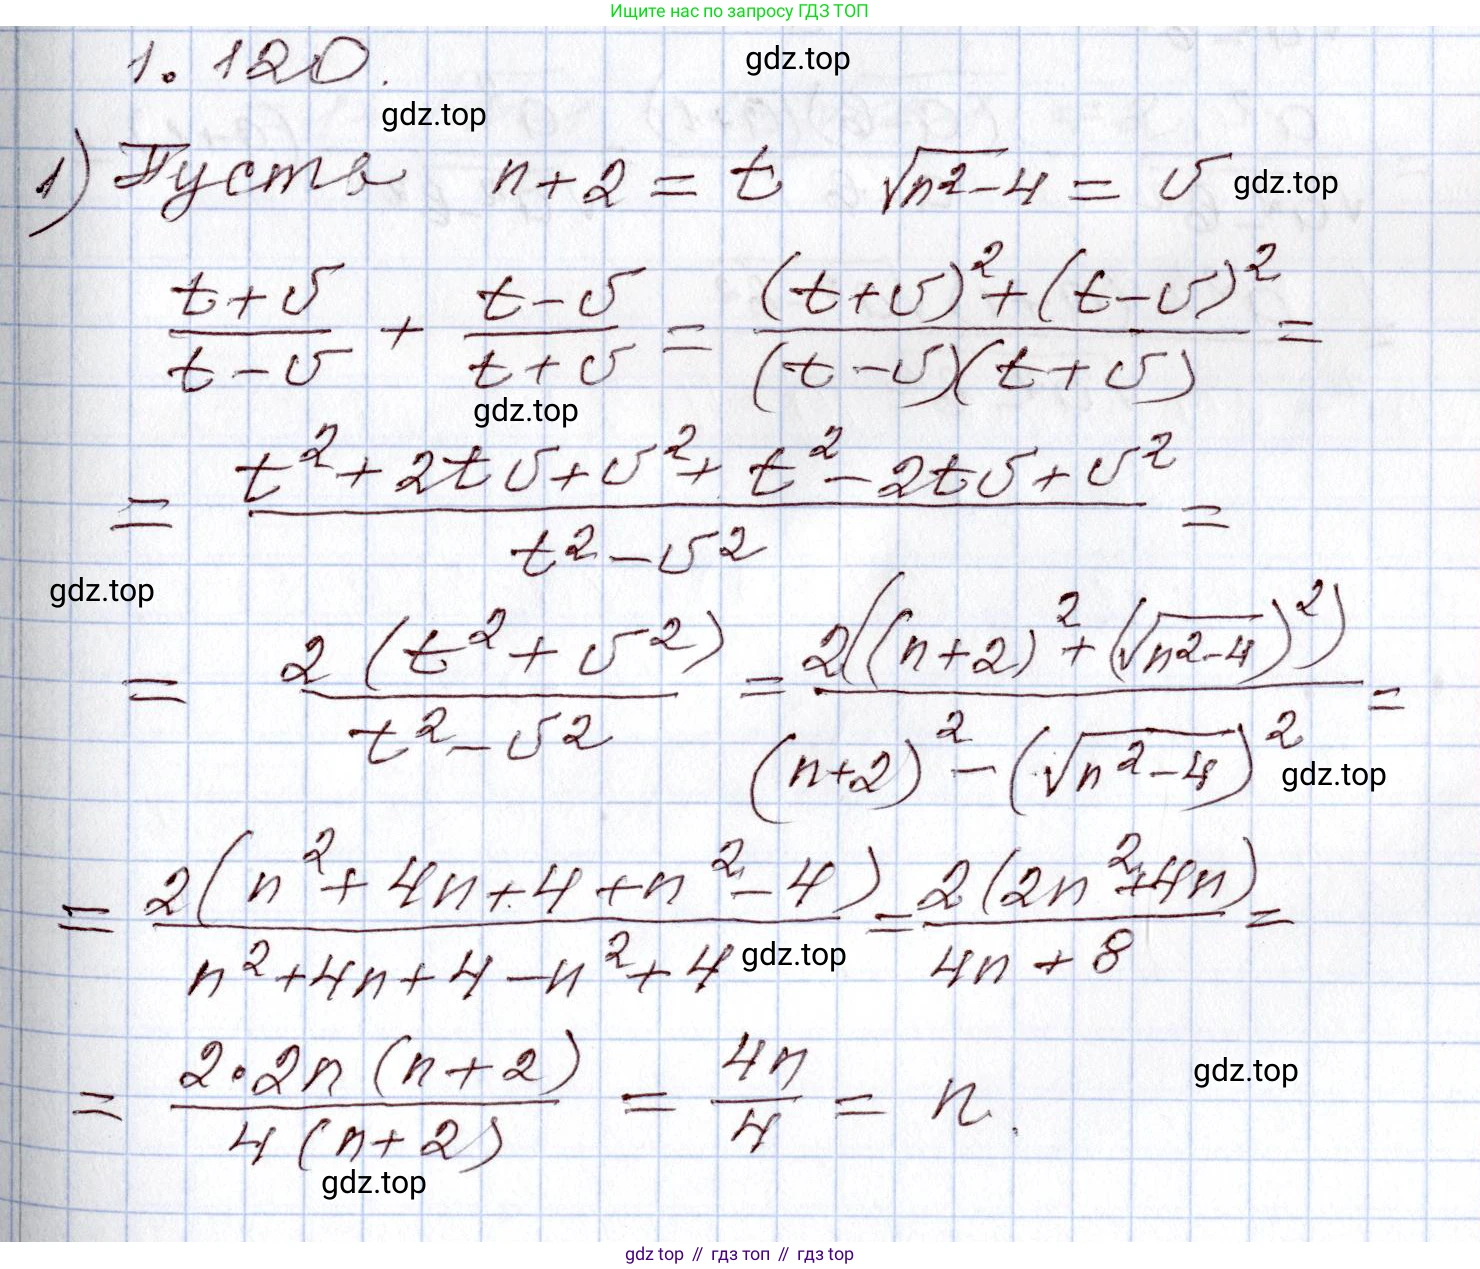 Ищите нас по запросу ГДЗ ТОП
1.120.
gdz.top
gdz.top
1) Пусть n+2 = t √n²-4 = υ
gdz.top
(t+υ)/(t-υ) + (t-υ)/(t+υ) = ((t+υ)²+(t-υ)²)/((t-υ)(t+υ)) =
gdz.top
= (t²+2tυ+υ²+t²-2tυ+υ²)/(t²-υ²) =
gdz.top
= 2(t²+υ²)/(t²-υ²) = 2((n+2)²+(√n²-4)²)/((n+2)²-(√n²-4)²) =
gdz.top
= 2(n²+4n+4+n²-4)/(n²+4n+4-n²+4) = 2(2n²+4n)/(4n+8) =
gdz.top
= 2·2n(n+2)/(4(n+2)) = 4n/4 = n.
gdz.top
gdz.top
gdz top // гдз топ // гдз top